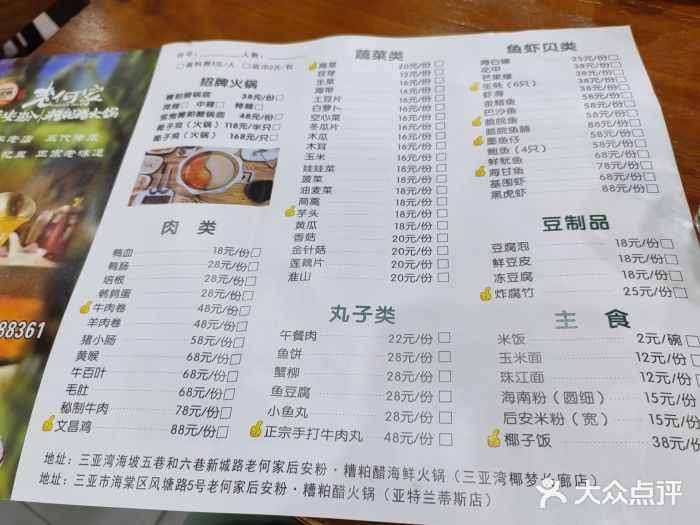 老何家
台号：________人数：________
□酱料费3元/人 □纸巾2元/包
招牌火锅
糟粕醋锅底 38元/份□
微辣□ 中辣□ 特辣□
鸳鸯糟粕醋锅底 48元/份□
椰子鸡（火锅）118元/半只□
椰子鸡（火锅） 168元/只□
肉 类
鸭血 18元/份□
鸭肠 28元/份□
培根 28元/份□
鹌鹑蛋 28元/份□
牛肉卷 48元/份□
羊肉卷 48元/份□
猪小肠 58元/份□
黄喉 68元/份□
牛百叶 68元/份□
毛肚 68元/份□
秘制牛肉 78元/份□
文昌鸡 88元/份□
蔬菜类
海菜 20元/份□
豆芽 12元/份□
生菜 16元/份□
海带 16元/份□
土豆片 16元/份□
白萝卜 16元/份□
空心菜 16元/份□
冬瓜片 16元/份□
木瓜 16元/份□
木耳 16元/份□
玉米 16元/份□
娃娃菜 18元/份□
菠菜 18元/份□
油麦菜 18元/份□
茼蒿 18元/份□
芋头 18元/份□
黄瓜 18元/份□
香菇 20元/份□
金针菇 20元/份□
莲藕片 20元/份□
淮山 20元/份□
丸子类
午餐肉 22元/份□
鱼饼 28元/份□
蟹柳 28元/份□
鱼豆腐 28元/份□
小鱼丸 28元/份□
正宗手打牛肉丸 48元/份□
鱼虾贝类
海白螺 25元/份□
花甲 38元/份□
芒果螺 38元/份□
生蚝（6只） 38元/份□
虾滑
金鲳鱼
巴沙鱼
脆皖鱼
脆皖鱼腩
墨鱼仔
鲍鱼（4只）
鲜鱿鱼
海甘鱼 78元/份□
基围虾 68元/份□
黑虎虾 88元/份□
豆制品
豆腐泡 18元/份□
鲜豆皮 18元/份□
冻豆腐 18元/份□
炸腐竹 25元/份□
主 食
米饭 2元/碗□
玉米面 12元/份□
珠江面 12元/份□
海南粉（圆细） 15元/份
后安米粉（宽） 15元/份
椰子饭 38元/份
88361
地址：三亚湾海坡五巷和六巷新城路老何家后安粉·糟粕醋海鲜火锅（三亚湾椰梦长廊店）
地址：三亚市海棠区风塘路5号老何家后安粉·糟粕醋火锅（亚特兰蒂斯店）
大众点评